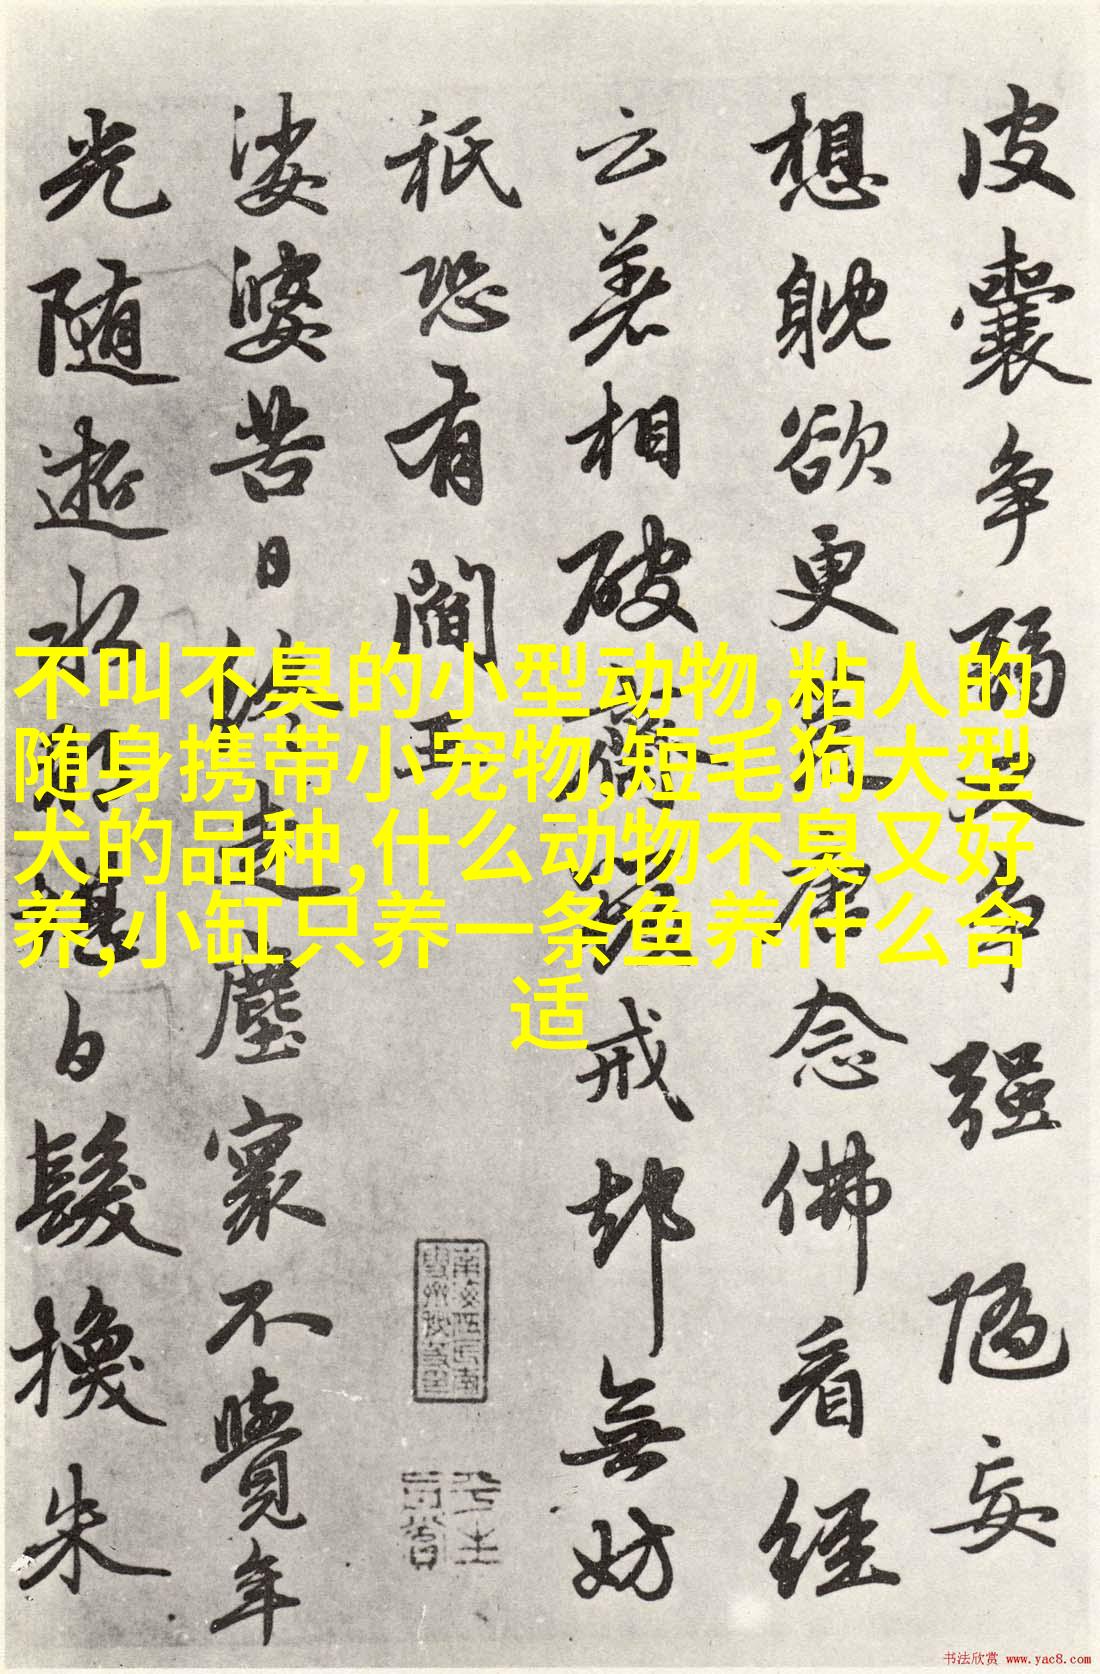 皮囊争弱又争强 随妄
想躭欲更荒唐念佛看经
云着相破齋毁戒却無妨
祇恐有閻王
娑婆苦日走塵寰不覺年
光随逝水那堪白髮換朱
不叫不臭的小型动物,粘人的
随身携带小宠物,短毛狗大型
犬的品种,什么动物不臭又好
养,小缸只养一条鱼养什么合
适
书法欣赏 www.yac8.com